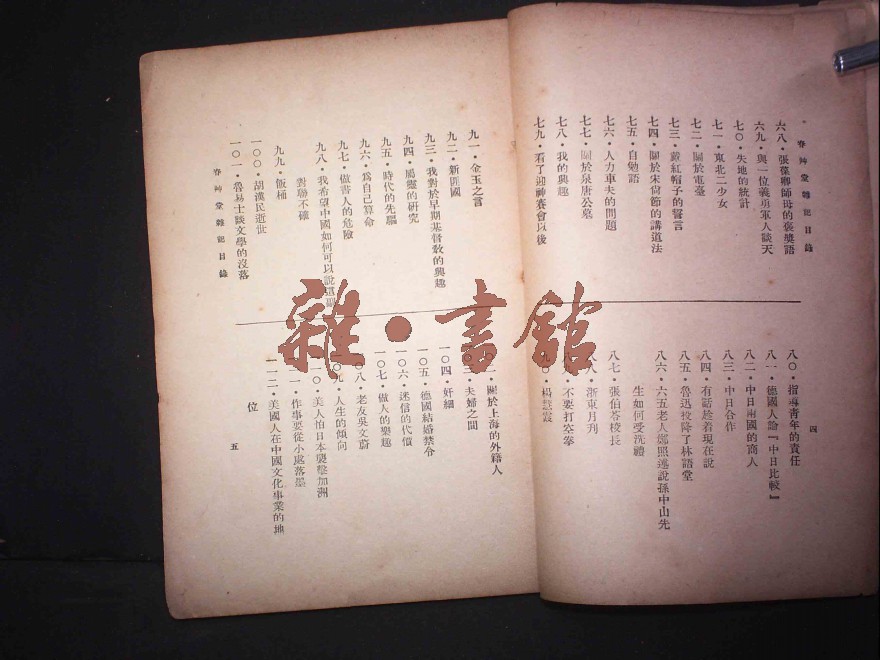 春艸堂雜記目錄
六八・張葆卿師母的褒獎語
六九・與一位義勇軍人談天
七〇・失地的統計
七一・東北二少女
七二・關於電臺
七三・戴紅帽子的警言
七四・關於宋尚節的講道法
七五・自勉語
七六・人力車夫的問題
七七・關於泉唐公墓
七八・我的興趣
七九・看了迎神賽會以後
八〇・指導青年的責任
八一・德國人論『中日比較』
八二・中日兩國的商人
八三・中日合作
八四・有話趁着現在說
八五・魯迅投降了林語堂
八六・六五老人鄺照述說孫中山先
生如何受洗禮
八七・張伯苓校長
八八・浙東月刊
八九・不要打空拳
九〇・楊慧震
四
九一・金玉之言
九二・新開國
九三・我對於早期基督教的興趣
九四・屬靈的研究
九五・時代的先驅
九六・爲自己算命
九七・做書人的危險
九八・我希望中國如何可以說這副
對聯不確
九九・飯桶
一〇〇・胡漢民逝世
一〇一・魯易士談文學的沒落
春艸堂雜記目錄
關於上海的外籍人
夫婦之間
一〇四・奸細
一〇五・德國結婚禁令
一〇六・迷信的代價
一〇七・做人的樂趣
〇八・老友吳文蔚
〇九・人生的傾向
一〇・美人怕日本襲擊加洲
一・作事要從小處落墨
一一二・美國人在中國文化事業的地
位
五
雜・書館